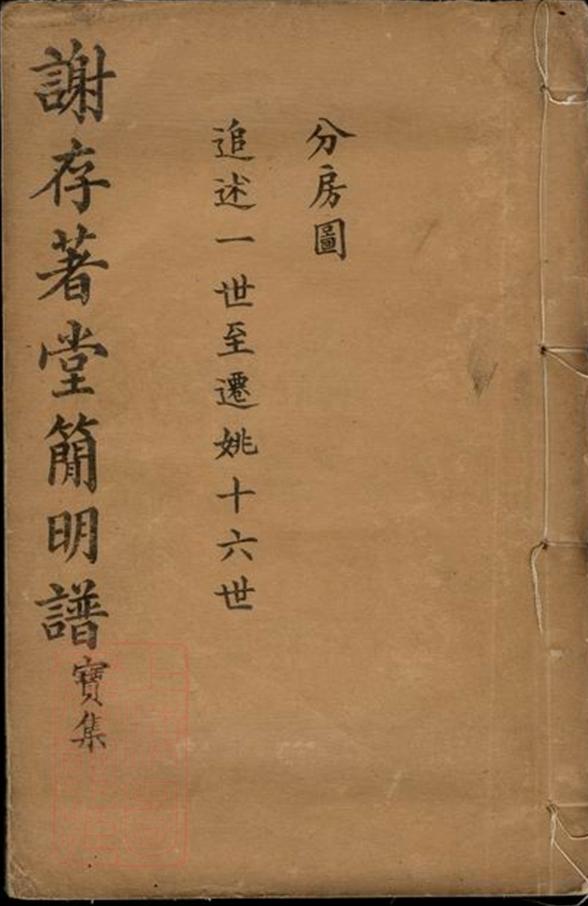 分房圖
追述一世至遷姚十六世
謝存著堂簡明譜寶集